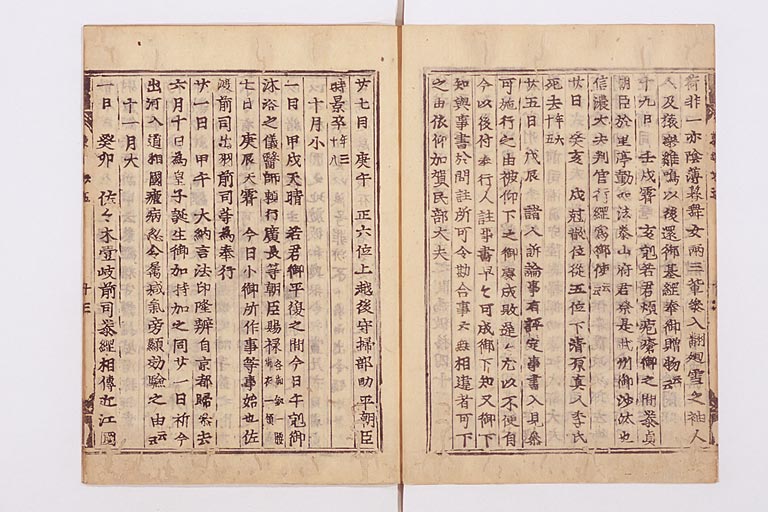 衛非一亦陰陽䒭舞女兩三輩參入飜廻雪之袖人
人及猿樂雞鳴以後還御基經奉御贈物云云
十九日 壬戌霽 亥剋若君煩疱瘡御之間泰貞
朝臣於里亭勤如法泰山府君祭是此州御沙汰也
信濃大夫判官行經爲御使云云
廿日 癸亥 戌尅散位從五位下淸原眞人季氏
死去年六十五
廿五日 戊辰 諸人訴論事有評定事書入見參
可施行之由被仰下之御寮成敗遲々尤以不便自
今以後付奉行人註事書早々可成御下知又御下
知與事書於問註所可令勘合事云云無相違者可下
之由依仰加賀民部大夫
廿七日 庚午 正六位上越後守掃部助平朝臣
時景卒年三十八
十月小
一日 甲戌天晴 若君御平復之間今日午剋御
沐浴之儀醫師賴行廣長等朝臣賜祿
七日 庚辰天霽 今日小御所作事等事始也佐
渡前司出羽前司等爲奉行
廿一日 甲午 大納言法印隆辨自京都歸參去
六月十日爲皇子誕生御加持加之同廿一日祈今
出河入道相國瘧病忽令屬減氣旁顯効驗之由云云
十一月大
一日 癸卯 佐々木壹岐前司泰經相傳近江國